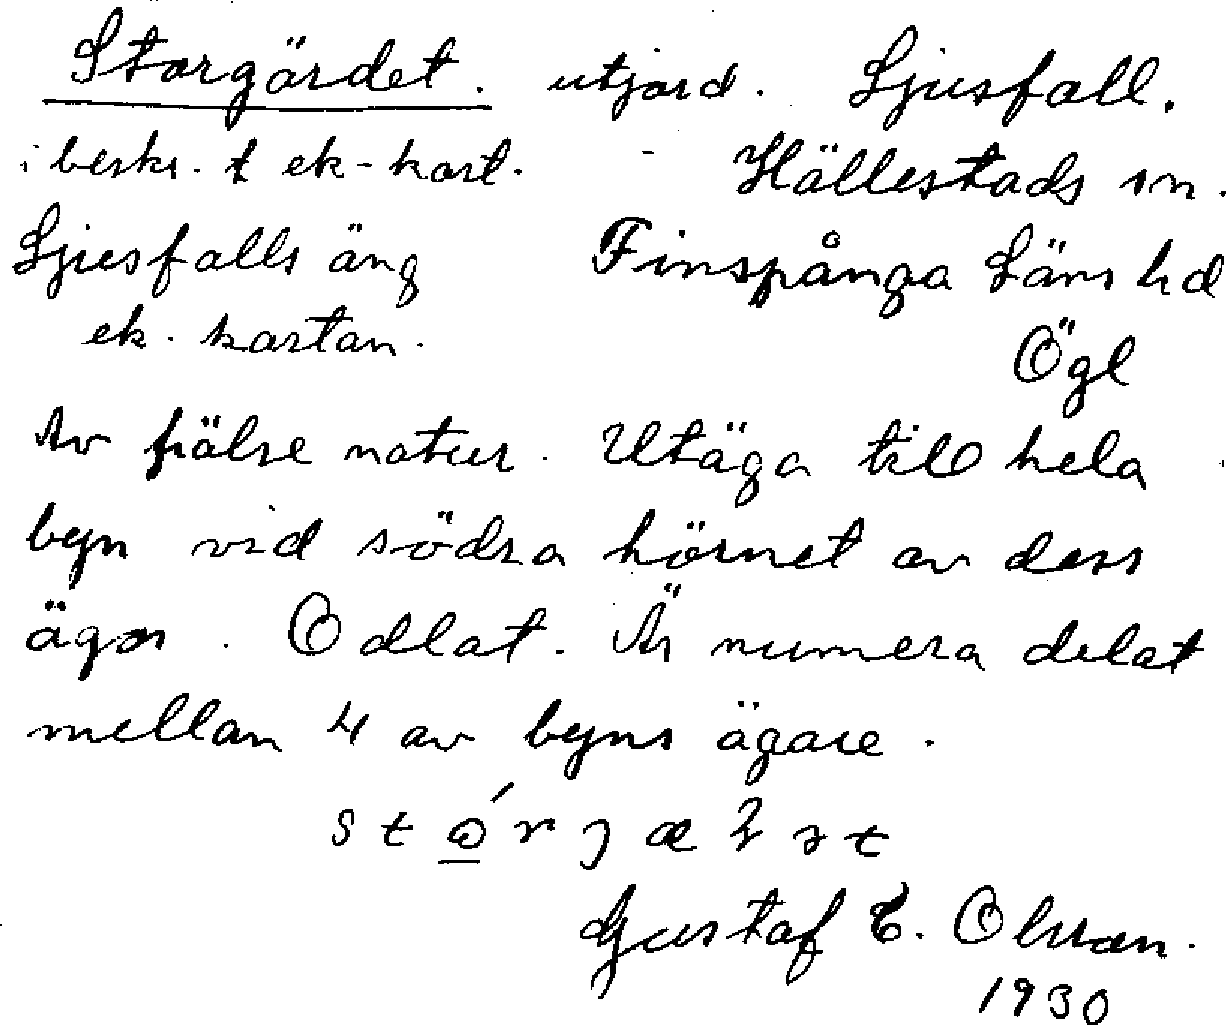 Storgärdet. utjord. Ljusfall.
i beskr. t ek-kart. - Hällestads sn.
Ljusfalls äng Finspånga Läns hd
ek. kartan. Ögl
Av frälse natur. Utäga till hela
byn vid södra hörnet av dess
ägor. Odlat. Är numera delat
mellan 4 av byns ägare.
Gustaf E. Olsson.
1930